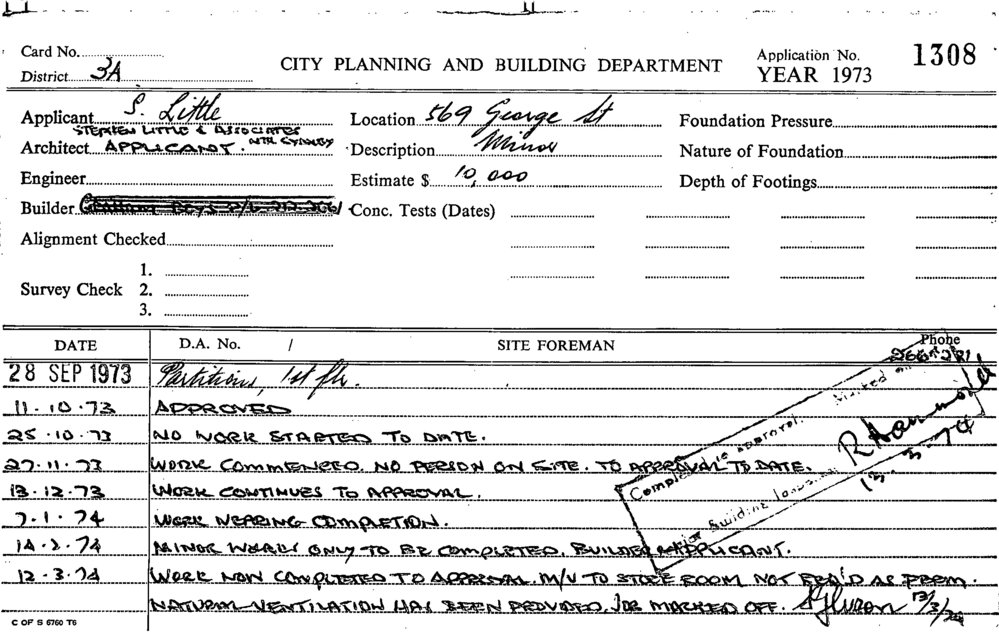 Card No.
District 3A
CITY PLANNING AND BUILDING DEPARTMENT
Application No.
YEAR 1973
1308
Applicant S. Little
STEPHEN LITTLE & ASSOCIATES
Architect APPLICANT. NTH SYDNEY
Engineer
Builder
Alignment Checked
Survey Check
1.
2.
3.
Location 569 George St
Description Minor
Estimate $ 10,000
Conc. Tests (Dates)
Foundation Pressure
Nature of Foundation
Depth of Footings
DATE
D.A. No. /
SITE FOREMAN
Phone
28 SEP 1973 Partitions, 1st flr.
11.10.73 APPROVED
25.10.73 NO WORK STARTED TO DATE.
27.11.73 WORK COMMENCED. NO PERSON ON SITE. TO APPROVAL TO DATE.
13.12.73 WORK CONTINUES TO APPROVAL.
7.1.74 WORK NEARING COMPLETION.
14.2.74 MINOR WORKS ONLY TO BE COMPLETED. BUILDER APPLICANT.
12.3.74 WORK NOW COMPLETED TO APPROVAL. M/V TO STORE ROOM NOT REQ'D AS PERM.
NATURAL VENTILATION HAS BEEN PROVIDED. JOB MARKED OFF. 12/3/74
Completed to approval. Marked
Building
R Hammond
13.3.74
C OF S 6760 T6